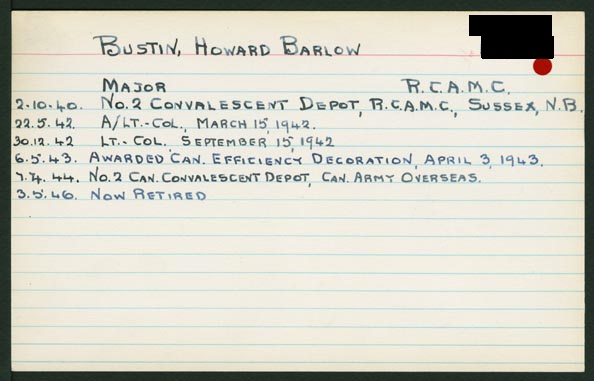 BUSTIN, HOWARD BARLOW
MAJOR R.C.A.M.C.
2.10.40. NO.2 CONVALESCENT DEPOT, R.C.A.M.C., SUSSEX, N.B.
22.5.42. A/LT.-COL., MARCH 15, 1942.
30.12.42 LT.-COL. SEPTEMBER 15, 1942
6.5.43. AWARDED CAN. EFFICIENCY DECORATION, APRIL 3, 1943.
7.4.44. NO.2 CAN. CONVALESCENT DEPOT, CAN. ARMY OVERSEAS.
3.5.46. NOW RETIRED